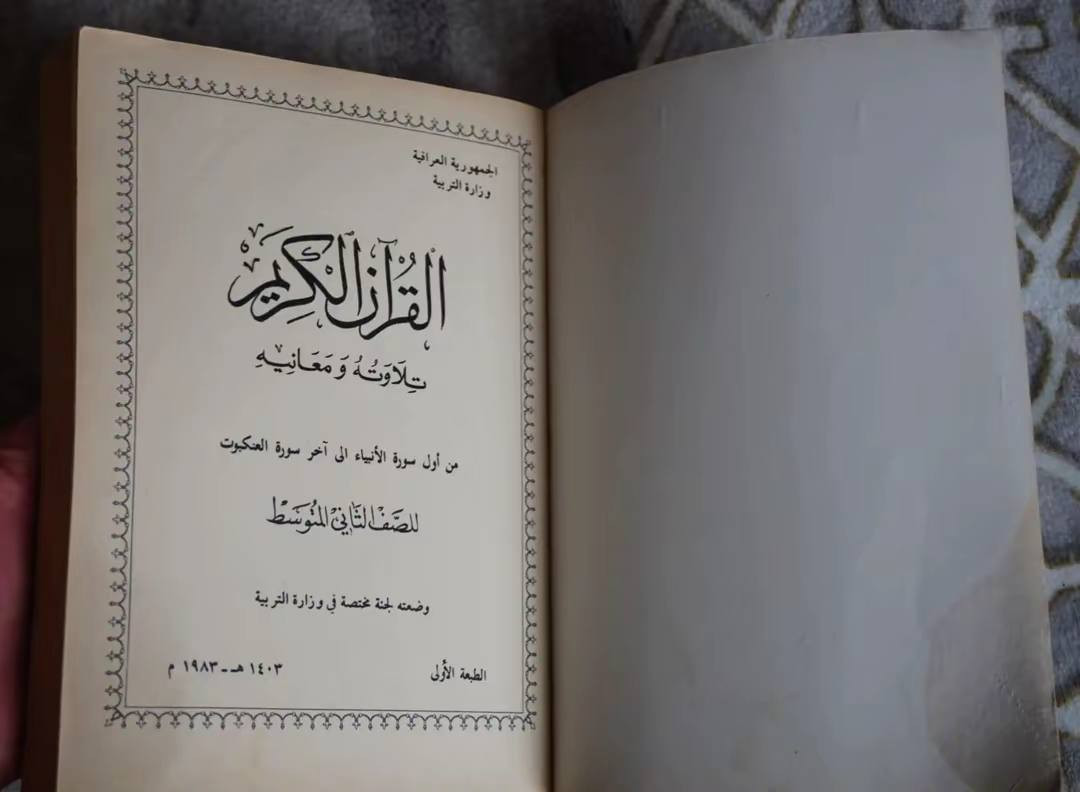 الجمهورية العراقية
وزارة التربية
القُرآنُ الْكَرِيمْ
تِلَاوَتُهُ وَمَعَانِيهِ
من أول سورة الأنبياء الى آخر سورة العنكبوت
للصَّف الثَّاني المُتوسَّط
وضعته لجنة مختصة في وزارة التربية
الطبعة الأولى ١٤٠٣ هـ - ١٩٨٣ م